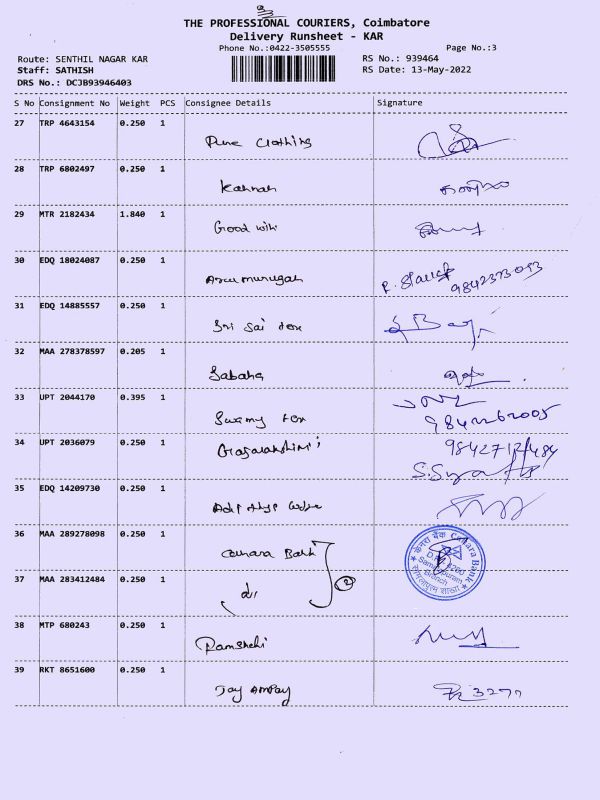 THE PROFESSIONAL COURIERS, Coimbatore
Delivery Runsheet - KAR
Phone No.:0422-3505555 Page No.:3
Route: SENTHIL NAGAR KAR RS No.: 939464
Staff: SATHISH RS Date: 13-May-2022
DRS No.: DCJB93946403
S No Consignment No Weight PCS Consignee Details Signature
27 TRP 4643154 0.250 1
Pune Clothing
28 TRP 6802497 0.250 1
Kannan
29 MTR 2182434 1.840 1
Good win
30 EDQ 18024087 0.250 1
Arumurugan 9842373053
31 EDQ 14885557 0.250 1
Sri Sai tex
32 MAA 278378597 0.205 1
Sabana
33 UPT 2044170 0.395 1
Swamy tex 9842262005
34 UPT 2036079 0.250 1
Gajalakshmi
35 EDQ 14209730 0.250 1
36 MAA 289278098 0.250 1
Canara Bank
केनरा बैंक Canara Bank
Branch
37 MAA 283412484 0.250 1
do 2
38 MTP 680243 0.250 1
39 RKT 8651600 0.250 1
Jay 3277